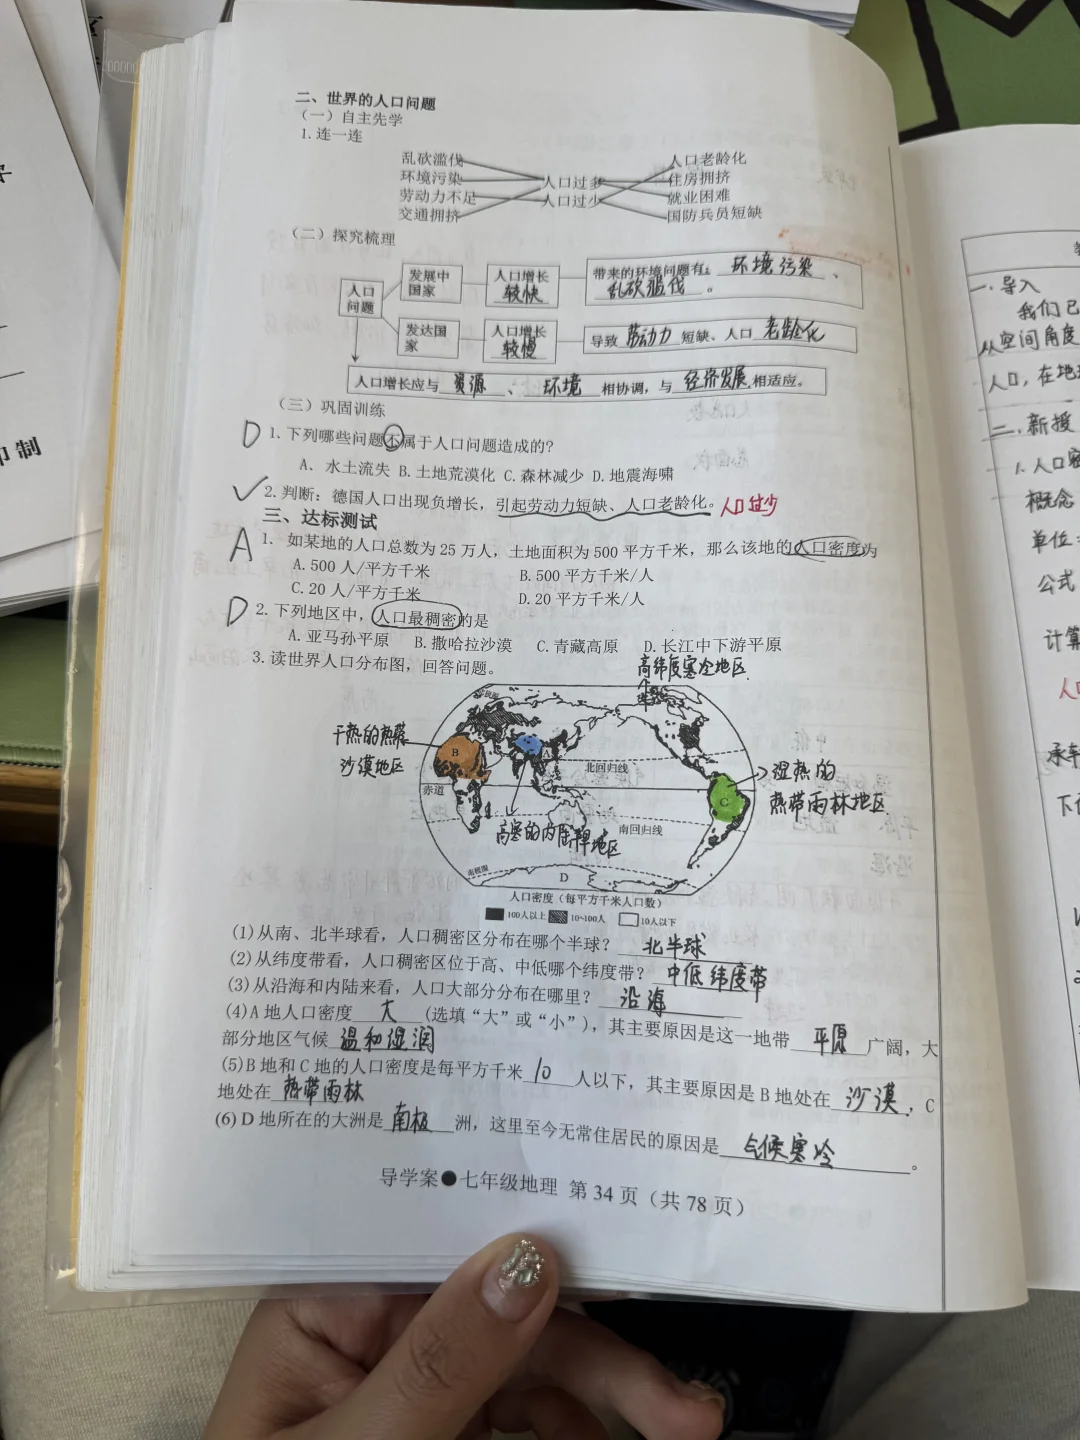 二、世界的人口问题
（一）自主先学
1.连一连
乱砍滥伐 人口老龄化
环境污染 人口过多 住房拥挤
劳动力不足 人口过少 就业困难
交通拥挤 国防兵员短缺
（二）探究梳理
人口问题
发展中国家 人口增长较快 带来的环境问题有：环境污染、乱砍滥伐。
发达国家 人口增长较慢 导致劳动力短缺、人口老龄化
人口增长应与资源、环境相协调，与经济发展相适应。
（三）巩固训练
D 1.下列哪些问题不属于人口问题造成的?
A、水土流失 B.土地荒漠化 C.森林减少 D.地震海啸
✓ 2.判断：德国人口出现负增长，引起劳动力短缺、人口老龄化。人口过少
三、达标测试
A 1. 如某地的人口总数为25万人，土地面积为500平方千米，那么该地的人口密度为
A.500人/平方千米 B.500平方千米/人
C.20人/平方千米 D.20平方千米/人
D 2.下列地区中，人口最稠密的是
A.亚马孙平原 B.撒哈拉沙漠 C.青藏高原 D.长江中下游平原
3.读世界人口分布图，回答问题。
高纬度寒冷地区
北极圈
干热的热带沙漠地区
B
A
北回归线
湿热的热带雨林地区
赤道
C
高寒的内陆地区
南回归线
南极圈
D
人口密度（每平方千米人口数）
100人以上 10~100人 10人以下
(1)从南、北半球看，人口稠密区分布在哪个半球？北半球
(2)从纬度带看，人口稠密区位于高、中低哪个纬度带？中低纬度带
(3)从沿海和内陆来看，人口大部分分布在哪里？沿海
(4)A地人口密度大(选填“大”或“小”)，其主要原因是这一地带平原广阔，大
部分地区气候温和湿润
(5)B地和C地的人口密度是每平方千米10人以下，其主要原因是B地处在沙漠，C
地处在热带雨林
(6)D地所在的大洲是南极洲，这里至今无常住居民的原因是气候寒冷。
导学案●七年级地理 第34页（共78页）
一.导入
我们已
从空间角度
人口，在地
二.新授
1.人口密
概念
单位：
公式
计算
人口
下
印制